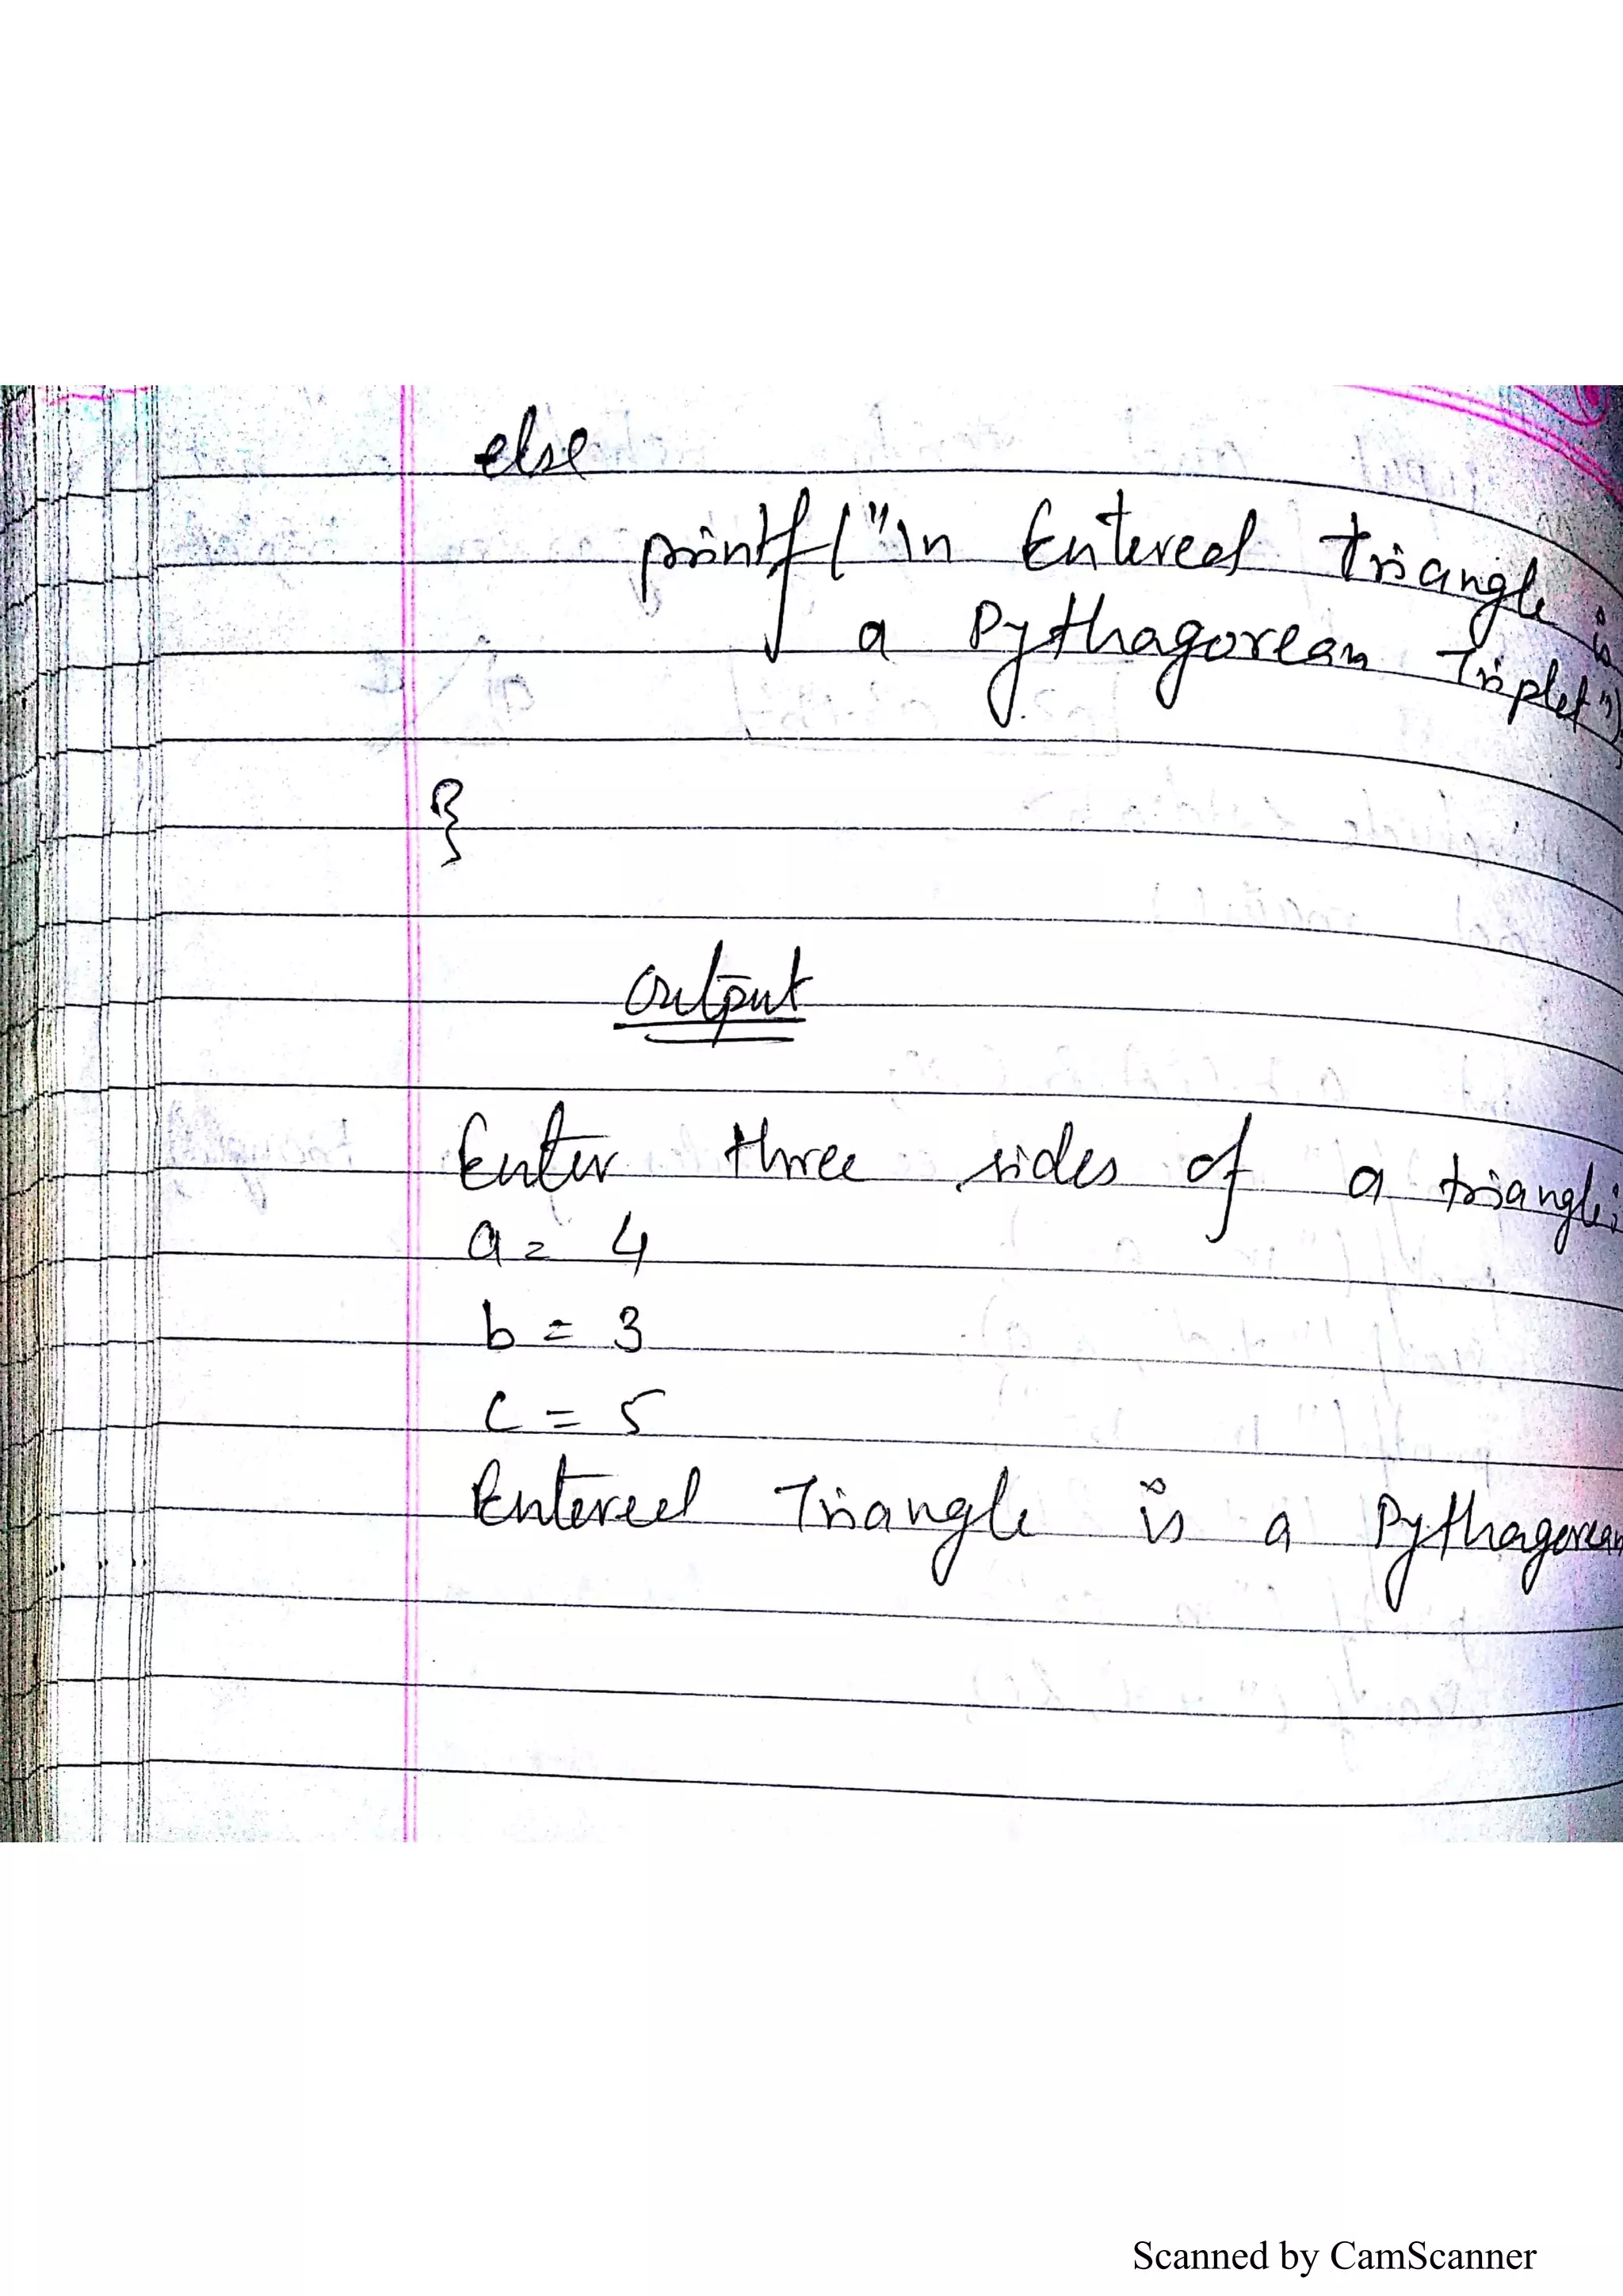 else
printf("\n Entered triangle is
a Pythagorean Triplet")
}
Output
Enter three sides of a triangle:
a = 4
b = 3
c = 5
Entered Triangle is a Pythagorean
Scanned by CamScanner